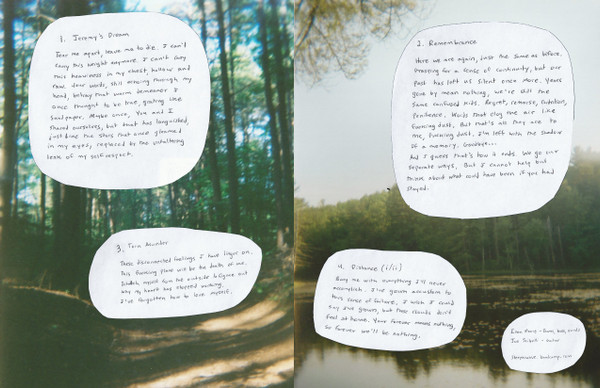 1. Jeremy's Dream
Tear me apart, leave me to die. I can't
carry this weight anymore. I can't carry
this heaviness in my chest, hollow and
Your words, still moving through my
head, betray that warm demeanor I
once thought to be true, grating like
sandpaper. Maybe once, You and I
shared ourselves, but that has languished,
just like the stars that once gleamed
in my eyes, replaced by the unfaltering
lack of my self-respect.
2. Remembrance
Here we are again, just the same as before.
Praying for a sense of continuity, but our
past has left us silent once more. Years
gone by mean nothing, we're still the
same confused kids. Regret, remorse, contrition,
penitence. Words that clog the air like
burning dust. But that's all they are to
me, burning dust. I'm left with the shadow
of a memory. Goodbye...
And I guess that's how it ends. We go our
separate ways. But I cannot help but
think about what could have been if you had
stayed.
3. Torn Asunder
These disconnected feelings I have linger on.
This fleeting place will be the death of me.
I've forgotten how to love myself.
4. Distance (i/ii)
Bury me with everything I'll never
accomplish. I've grown accustom to
this sense of failure. I wish I could
say I've grown, but these hands don't
feel at home. Your forever means nothing,
so forever we'll be nothing.